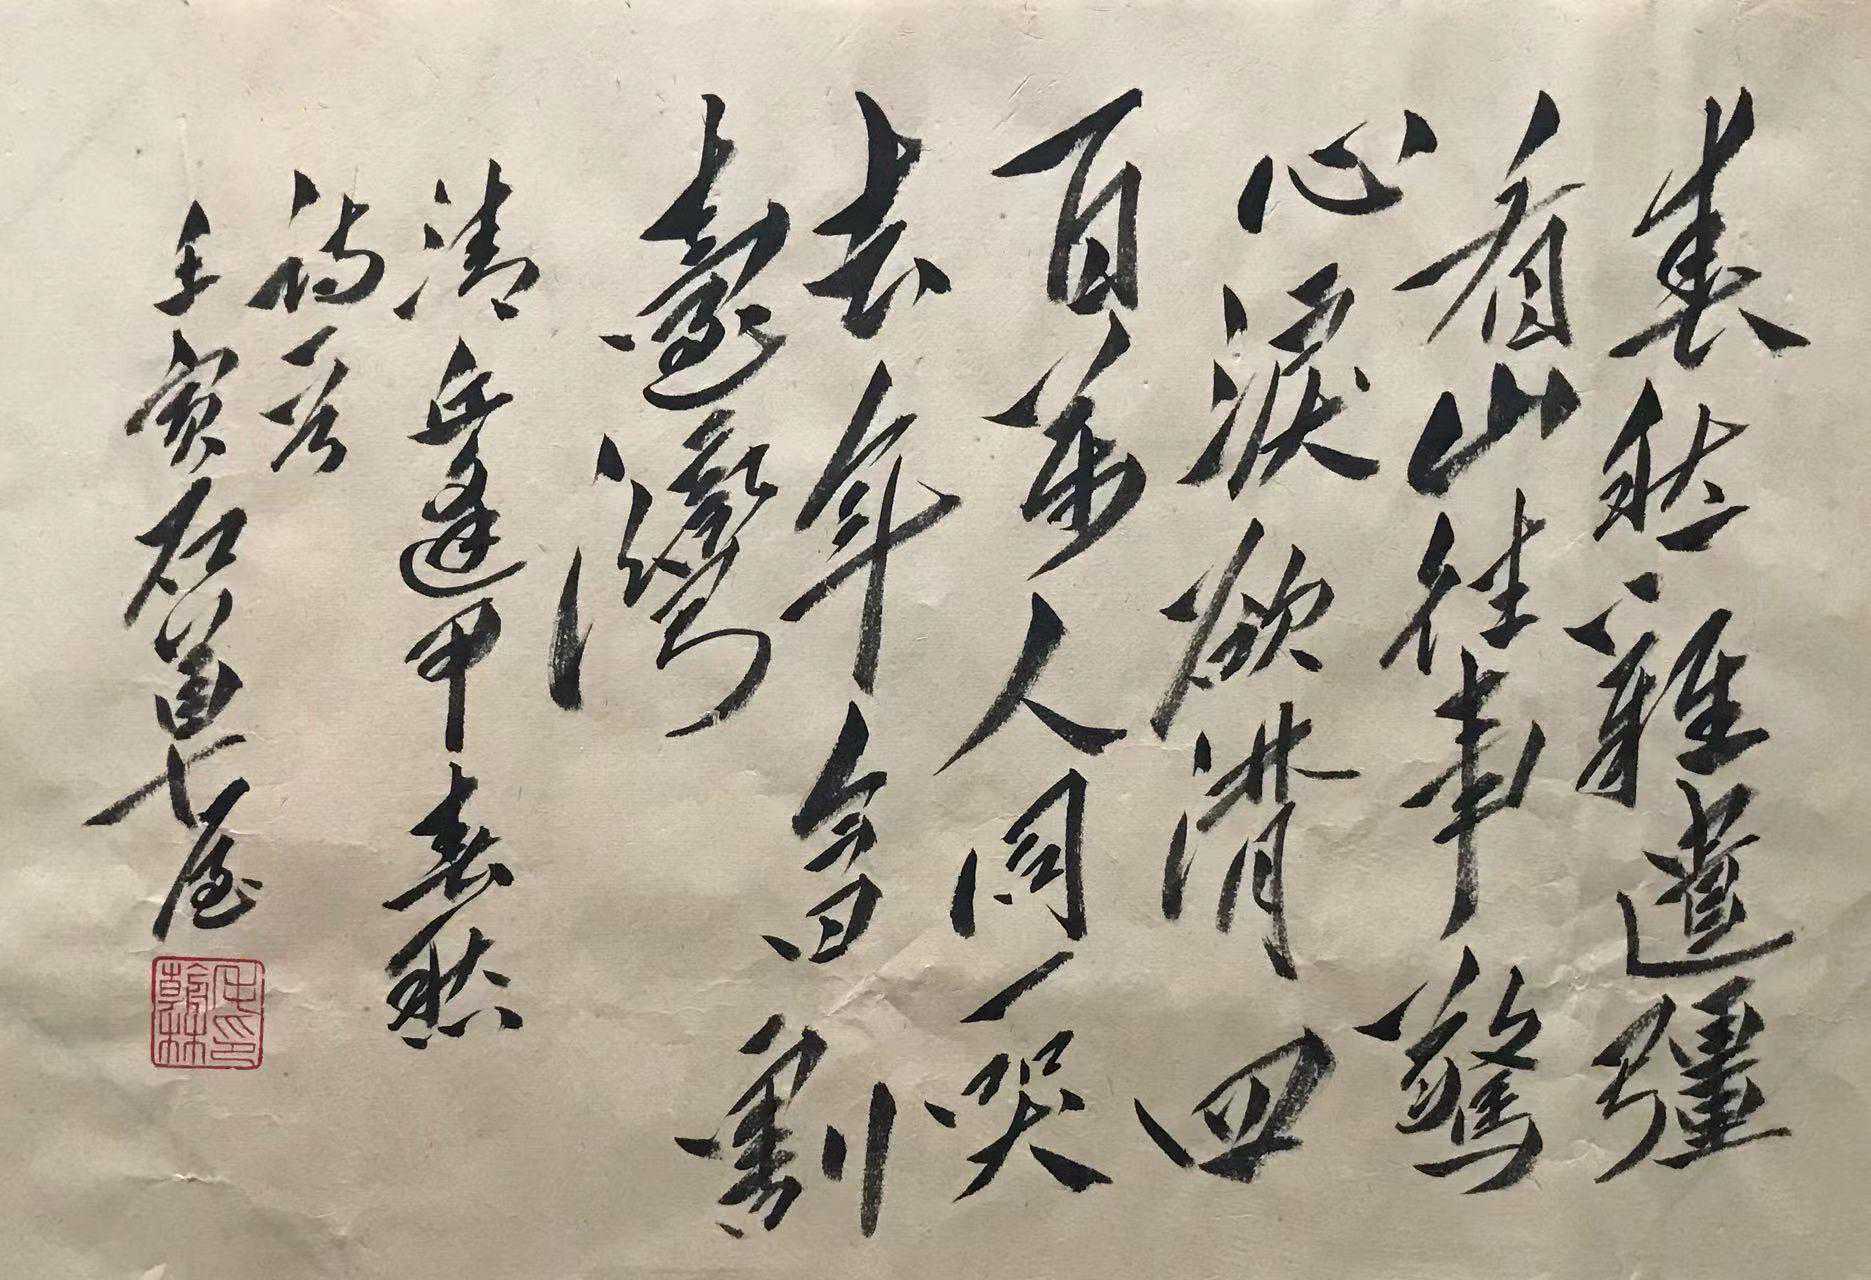 春愁難遣彊
看山往事驚
心淚欲潸四
百萬人同一哭
去年今日割
臺灣
清丘逢甲春愁
詩一首
壬寅